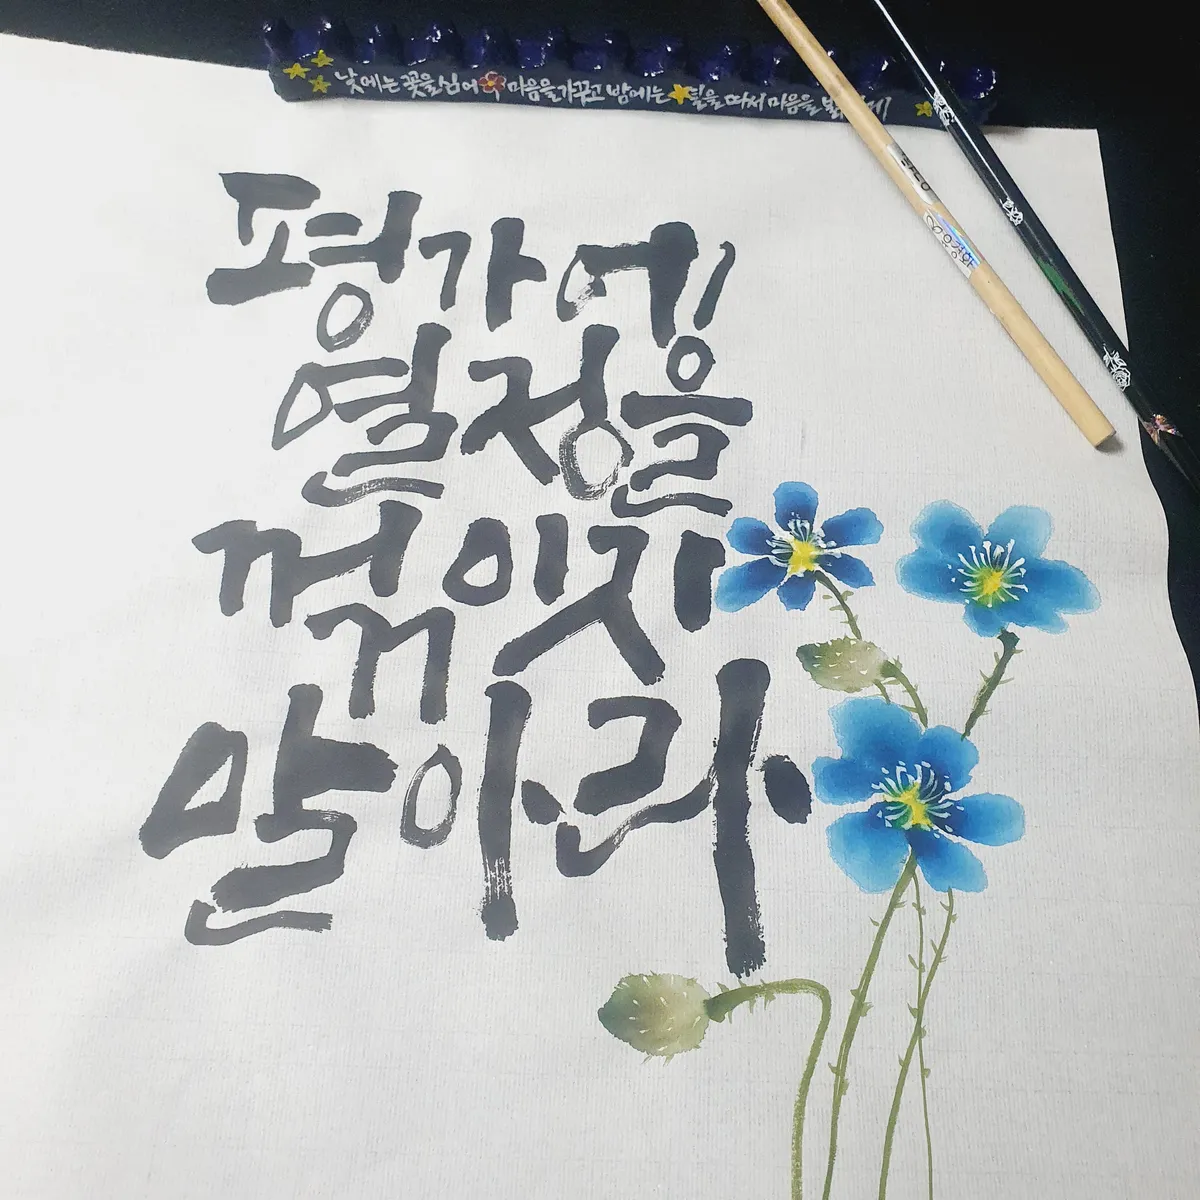 낮에는 꽃을 심어 마음을 가꾸고 밤에는 별을 따서 마음을
평가에
열정을
꺾이지
말아라